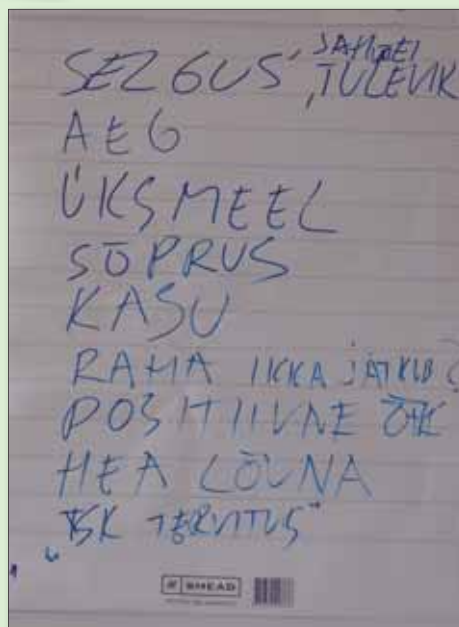 SELGUS, TULEVIK
AEG
ÜKSMEEL
SÕPRUS
KASU
RAHA IKKA JÄTKUB
POSITIIVNE
HEA LÕUNA
TERVITUS"
SMEAD